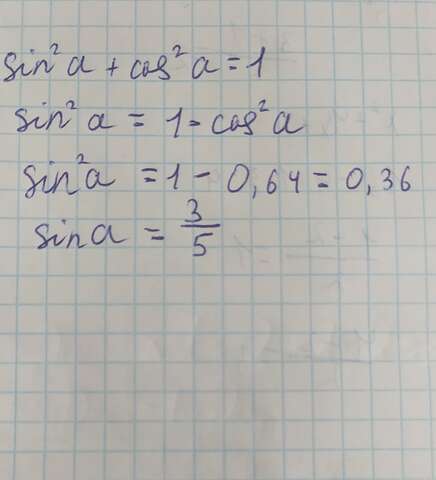 sin²a + cos²a = 1
sin²a = 1 - cos²a
sin²a = 1 - 0,64 = 0,36
sin a = 3/5